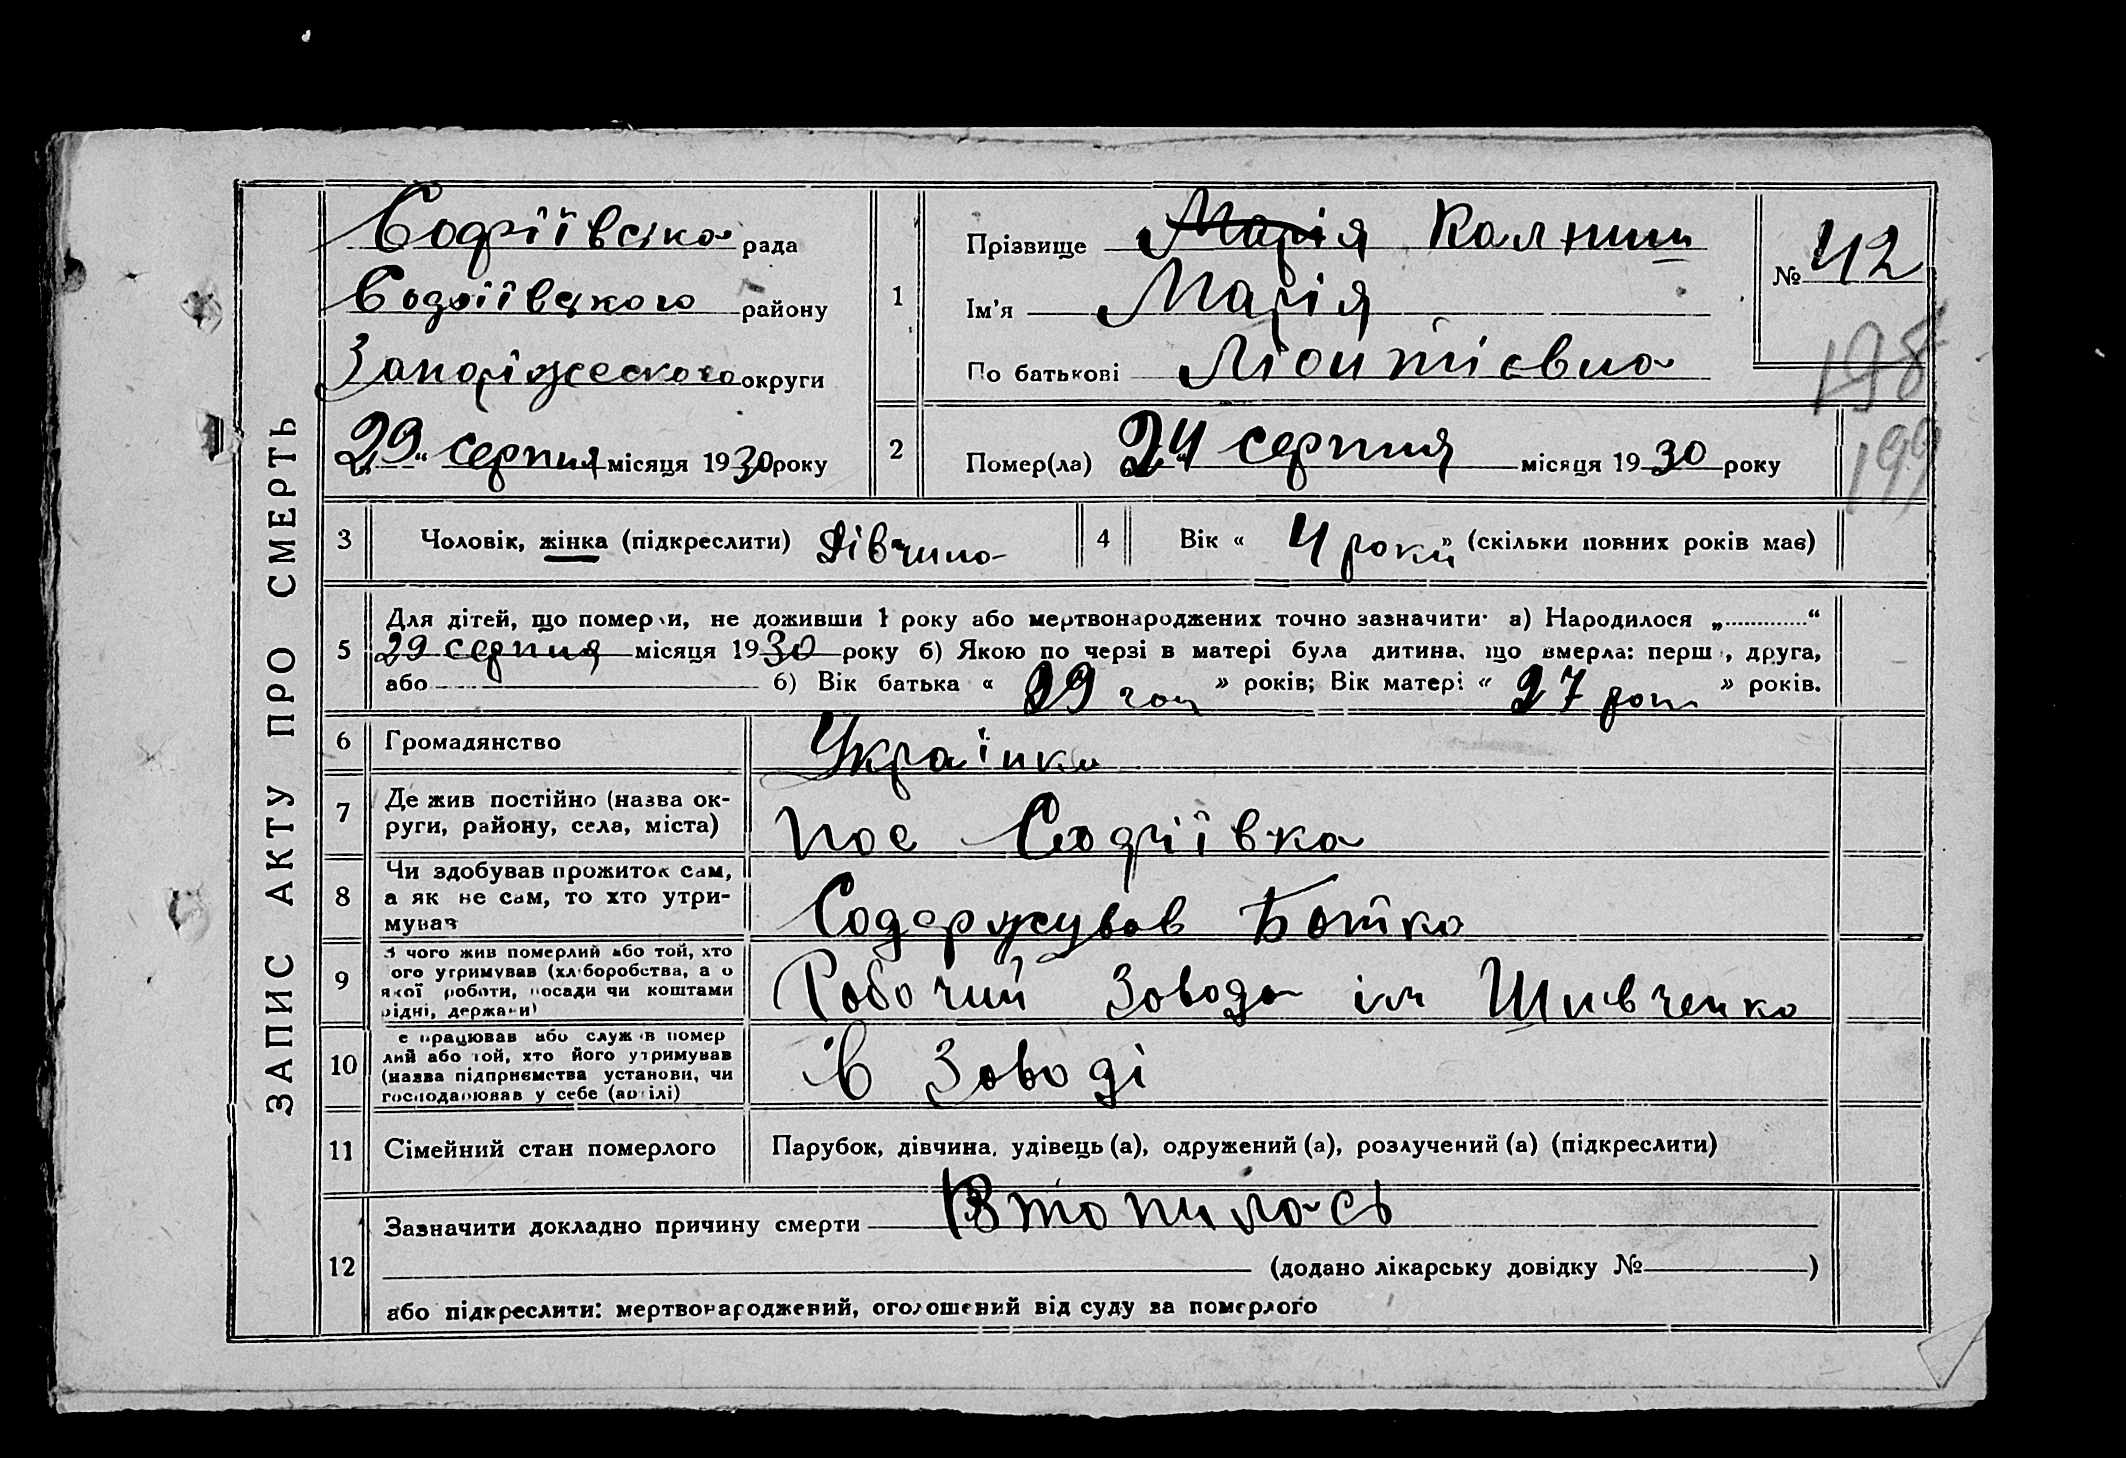 ЗАПИС АКТУ ПРО СМЕРТЬ
Софіївська рада
Софіївського району
Запоріжеського округи
29 " серпня місяця 1930 року
1
Прізвище Марія Калниш
Ім'я Марія
По батькові
№ 42
198
199
2
Помер(ла) 24 серпня місяця 1930 року
3 Чоловік, жінка (підкреслити) Дівчина
4 Вік « 4 роки » (скільки повних років має)
5
Для дітей, що померли, не доживши 1 року або мертвонароджених точно зазначити: а) Народилося „ “
29 серпня місяця 1930 року б) Якою по черзі в матері була дитина, що вмерла: перша, друга,
або б) Вік батька « 29 » років; Вік матері « 27 » років.
6 Громадянство Українка
7
Де жив постійно (назва ок-
руги, району, села, міста)
пос Софіївка
8
Чи здобував прожиток сам,
а як не сам, то хто утри-
мував
Содержував Батко
9
З чого жив померлий або той, хто
його утримував (хліборобства, а о
якої роботи, посади чи коштами
рідні, держави)
Робочий Завода ім Шивченко
10
е працював або служив помер
лий або той, хто його утримував
(назва підприємства установи, чи
господарював у себе (артілі)
в Заводі
11 Сімейний стан померлого Парубок, дівчина, удівець (а), одружений (а), розлучений (а) (підкреслити)
12
Зазначити докладно причину смерти Втопилась
(додано лікарську довідку № )
або підкреслити: мертвонароджений, оголошений від суду за померлого